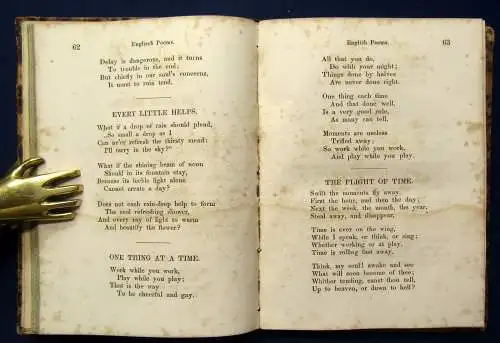 62 English Poems.
Delay is dangerous, and it turns
To trouble in the end;
But chiefly in our soul's concerns,
It must to ruin tend.
EVERY LITTLE HELPS.
What if a drop of rain should plead,
„So small a drop as I
Can ne'er refresh the thirsty mead:
I'll tarry in the sky?"
What if the shining beam of noon
Should in its fountain stay,
Because its feeble light alone
Cannot create a day?
Does not each rain-drop help to form
The cool refreshing shower,
And every ray of light to warm
And beautify the flower?
ONE THING AT A TIME.
Work while you work,
Play while you play;
That is the way
To be cheerful and gay.
English Poems. 63
All that you do,
Do with your might;
Things done by halves
Are never done right.
One thing each time
And that done well,
Is a very good rule,
As many can tell.
Moments are useless
Trifled away;
So work while you work,
And play while you play.
THE FLIGHT OF TIME.
Swift the moments fly away.
First the hour, and then the day;
Next the week, the month, the year,
Steal away, and disappear.
Time is ever on the wing,
While I speak, or think, or sing;
Whether working or at play,
Time is rolling fast away.
Think, my soul! awake and see
What will soon become of thee;
Whither tending, canst thou tell,
Up to heaven, or down to hell?